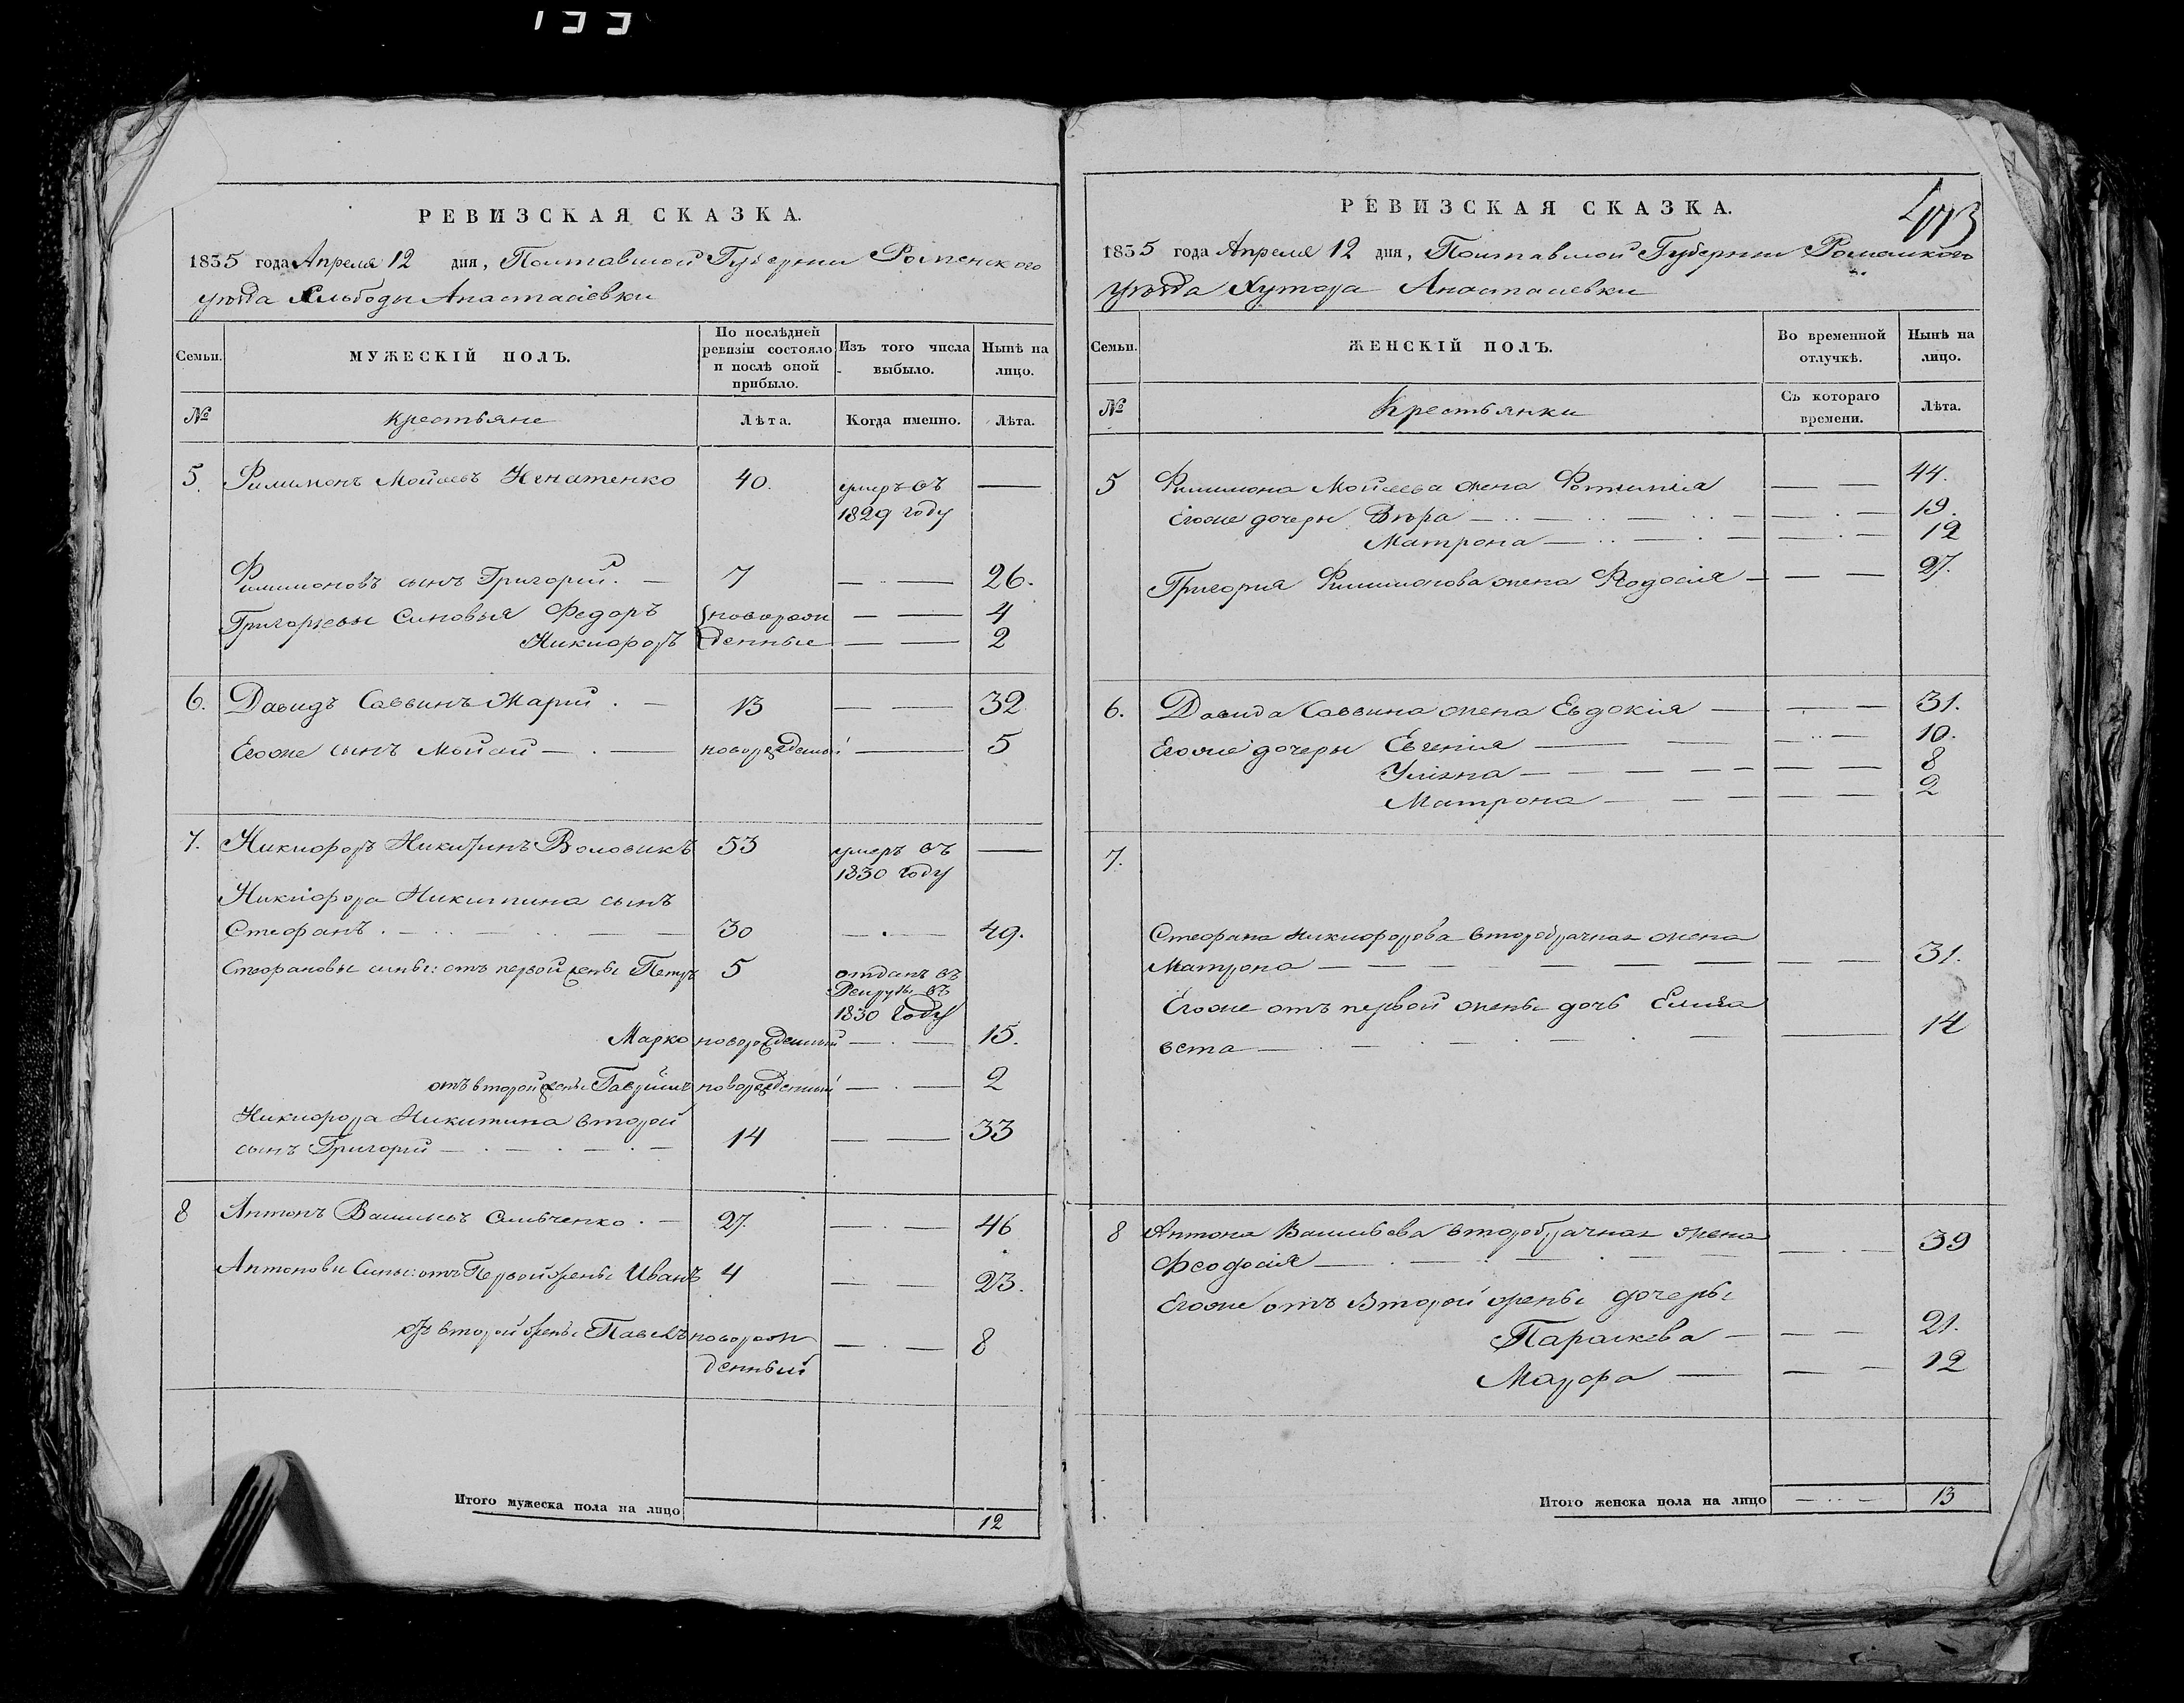 РЕВИЗСКАЯ СКАЗКА.
1835 года Апреля 12 дня, Полтавской Губернии Роменского
уѣзда Анастасіевки
Семьи.
МУЖЕСКІЙ ПОЛЪ.
По послѣдней ревизіи состояло и послѣ оной прибыло.
Изъ того числа выбыло.
Нынѣ на лицо.
№
Крестьяне
Лѣта.
Когда именно.
Лѣта.
5. Филимонъ Мойсеевъ 40. умеръ въ —
1829 году
Филимоновъ сынъ Григорій. — 7 — — 26.
Григорьевы Синовья Федоръ новорож — — 4
Никифоръ денные — — 2
6. Давидъ Саввинъ Жарій . — 13 — — 32.
Егоже сынъ Мойсей — . — новорожденый — 5
7. Никифоръ Никитинъ Воловикъ 53 умеръ въ —
1830 году
Никифора Никитина сынъ
Стефанъ . — 30 — . — 49.
Стефановы сины: отъ первой жены Петръ 5 отданъ въ
Рекруты въ
1830 году
Марко новорожденный — . — 15.
отъ второй жены Гавріилъ новорожденный — . — 2
Никифора Никитина второй
сынъ Григорій — . — . — . — 14 — — 33
8 Антонъ Васильевъ . — 27. — . — 46
Антонови Сины: отъ Первой жены Иванъ 4 — — 23.
отъ второй жены Павелъ новорож — . — 8
денный
Итого мужеска пола на лицо
12
РЕВИЗСКАЯ СКАЗКА.
1835 года Апреля 12 дня, Полтавской Губернии Роменского
уѣзда Хутора Анастасіевки
Семьи.
ЖЕНСКІЙ ПОЛЪ.
Во временной отлучкѣ.
Нынѣ на лицо.
№
Крестьянки
Съ котораго времени.
Лѣта.
5 Филимона Мойсеева жена — — 44.
Егоже дочеры Вѣра — — . — 19.
Матрона — — . — 12
Григория Филимонова жена Феодосія — — — 27.
6. Давида Саввина жена Евдокія — — — 31.
Егоже дочеры Евгенія — — — 10.
Уліяна — — — 8
Матрона — — — 2
7.
Стефана Никифорова второбрачная жена
Матрона — — — 31.
Егоже отъ первой жены дочь Елиза
вета — — 14
8 Антона Васильева второбрачная жена
Феодосія — . — — . — 39
Егоже отъ Второй жены дочеры
Параскева — — — 21.
Мавра — — — 12
Итого женска пола на лицо — . . — 13